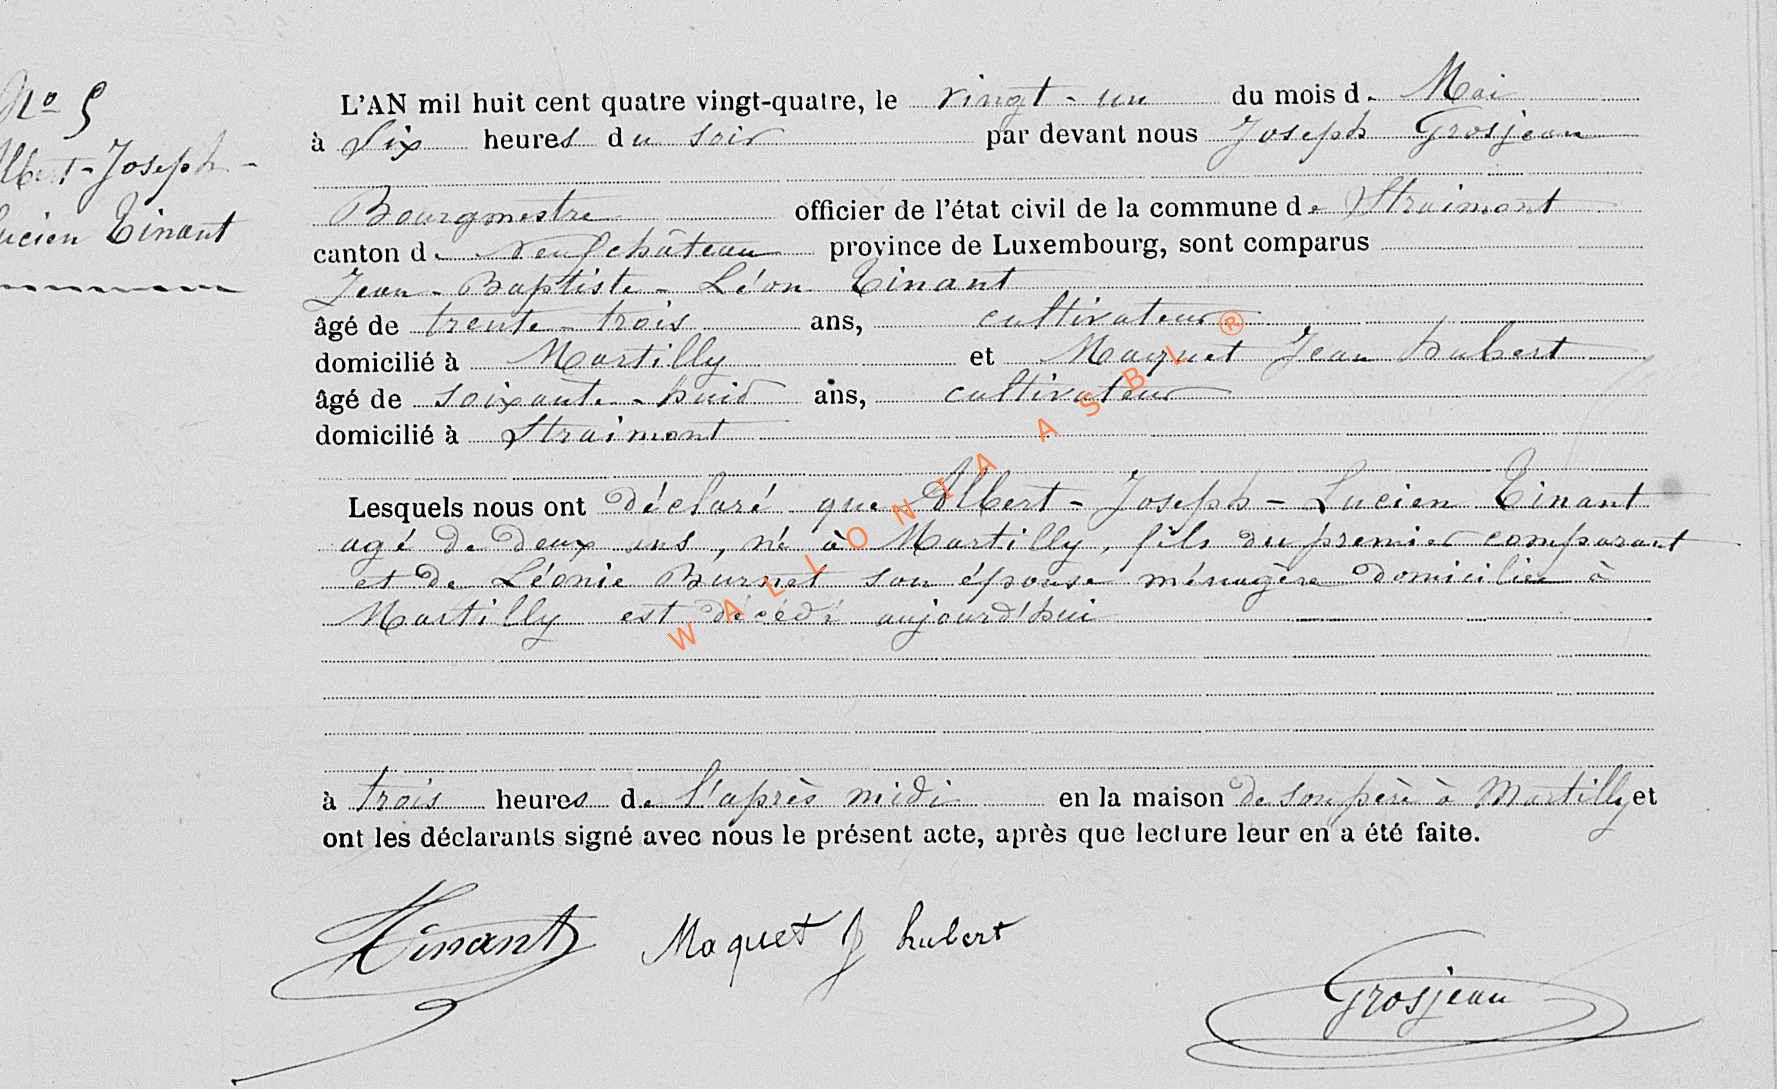 No 5
Albert-Joseph-
Lucien Tinant
L'AN mil huit cent quatre vingt-quatre, le vingt-un du mois de Mai
à Six heures du soir par devant nous Joseph Grosjean
Bourgmestre officier de l'état civil de la commune de Straimont
canton de Neufchâteau province de Luxembourg, sont comparus
Jean-Baptiste-Léon Tinant
âgé de trente-trois ans, cultivateur
domicilié à Martilly et Maquet Jean hubert
âgé de soixante-huit ans, cultivateur
domicilié à Straimont
Lesquels nous ont déclaré que Albert-Joseph-Lucien Tinant
agé de deux ans, né à Martilly, fils du premier comparant
et de Léonie Burnet son épouse ménagère domiciliée à
Martilly est décédé aujourd'hui
à trois heures de l'après midi en la maison de son père à Martilly et
ont les déclarants signé avec nous le présent acte, après que lecture leur en a été faite.
Tinant Maquet J hubert
Grosjean
WALLONIA ASBL ®